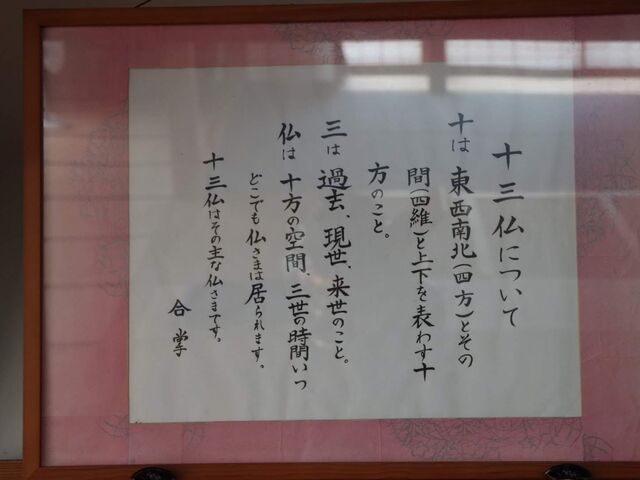 十三仏について
十は 東西南北(四方)とその
間(四維)と上下を表わす十
方のこと。
三は 過去、現世、来世のこと。
仏は 十方の空間、三世の時間いつ
どこでも仏さまは居られます。
十三仏はその主な仏さまです。
合掌